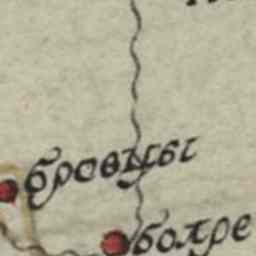 бровцы
болре